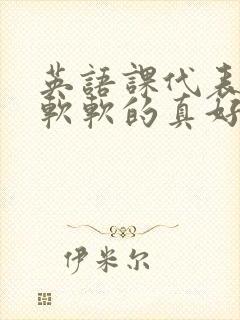 英語課代表
軟軟的真好
伊米尔